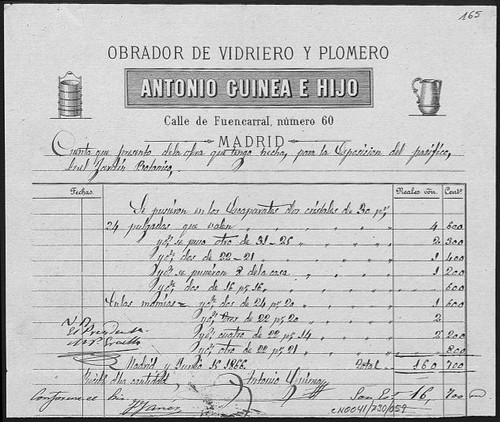 165
OBRADOR DE VIDRIERO Y PLOMERO
ANTONIO GUINEA E HIJO
Calle de Fuencarral, número 60
MADRID
Cuenta que presento de la obra que tengo hecha, para la Esposicion del pacifico,
en el Jardin Botanico,
Fechas. Reales vón. Cents
Se pusieron en los Escaparates dos cristales de 30 pr
24 pulgadas que valen 4 600
Yd. se puso otro de 31-26 2 300
Yd. dos de 22-21 1 400
Yd. se pusieron 3 de la casa 1 200
Yd. dos de 16 pr 16 600
En las momias= Yd. dos de 24 pr 20 1 600
Yd. tres de 22 pr 20 2
Vº Bº
El Presidente Yd. cuatro de 22 pr 14 2 200
Yd. otro de 22 pr 21 800
Madrid y Junio 15 1866. Total 160 700
Recibi dha cantidad Antonio Guinea
Conforme Son Es. 16, 700
CN0041/790/059